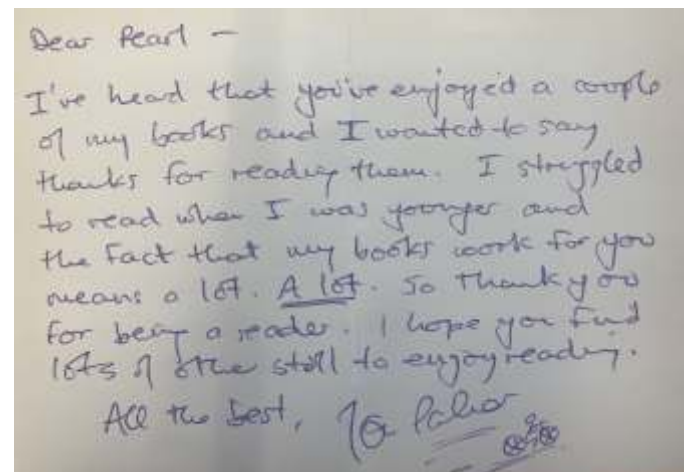 Dear Pearl -
I've heard that you've enjoyed a couple
of my books and I wanted to say
thanks for reading them. I struggled
to read when I was younger and
the fact that my books work for you
means a lot. A lot. So thank you
for being a reader. I hope you find
lots of other stuff to enjoy reading.
All the best, Tom Palmer